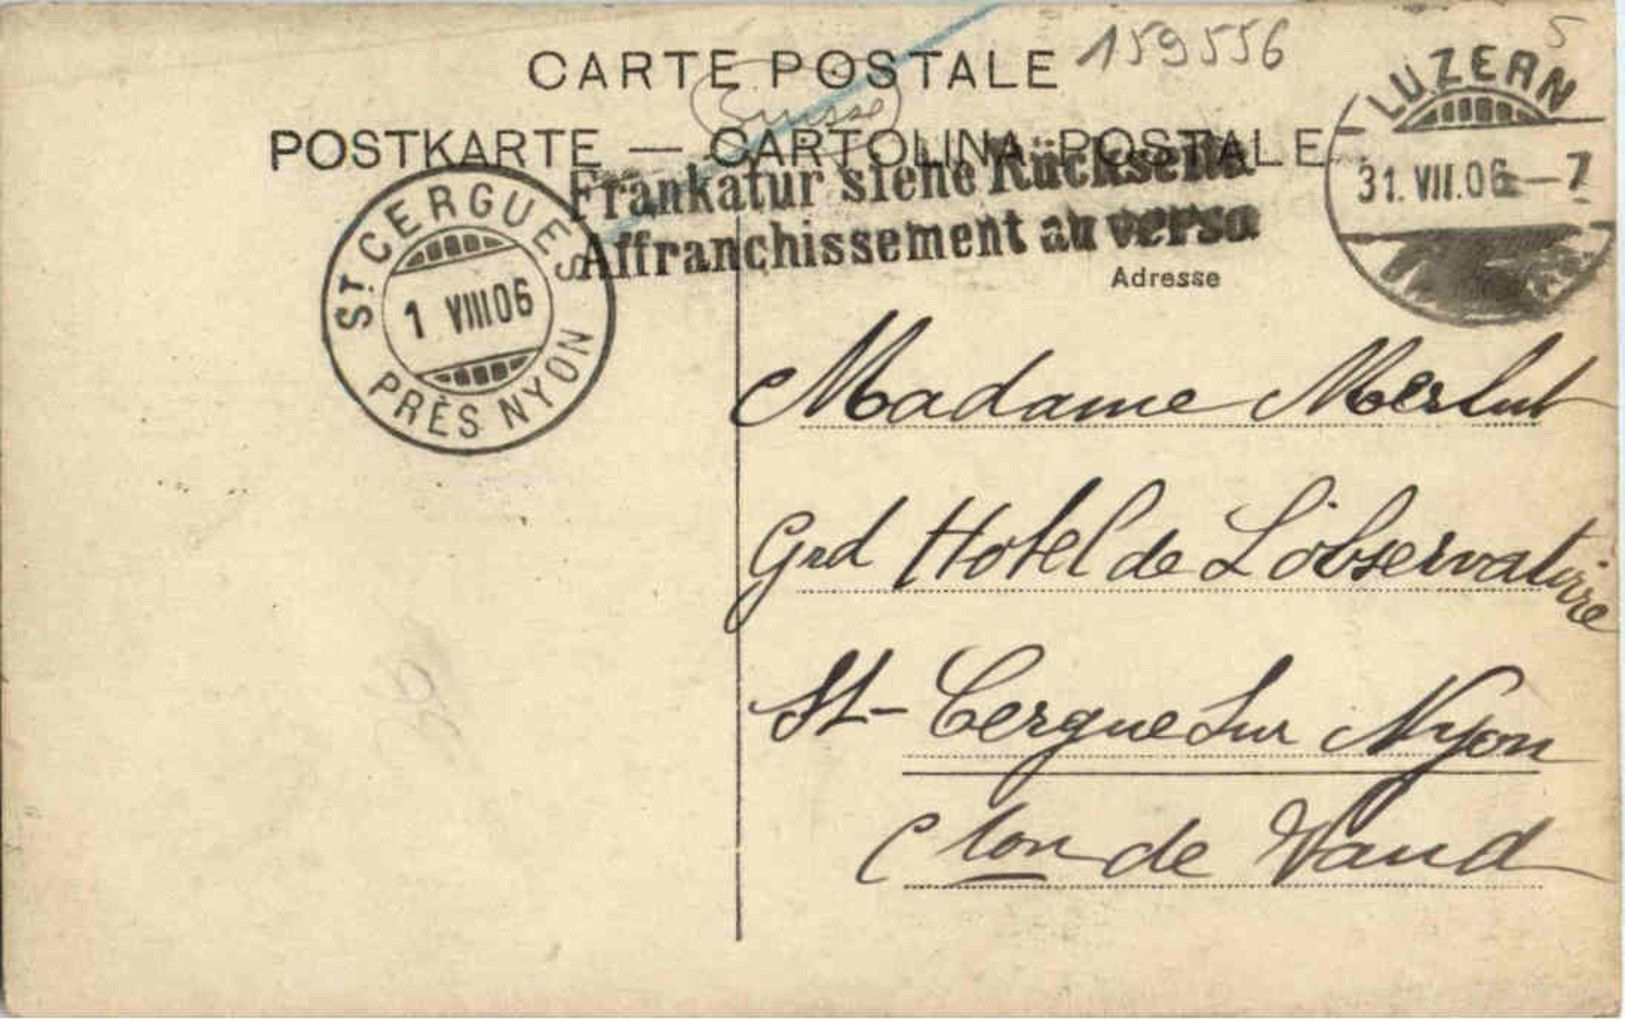 CARTE POSTALE 159556 5
(Suisse)
POSTKARTE — CARTOLINA POSTALE
Frankatur siehe Rückseite
Affranchissement au verso
LUZERN
31. VII. 06 — 7
ST CERGUES
1 VIII 06
PRÈS NYON
Adresse
Madame Merlut
Grd Hotel de L'observatoire
St-Cergue Sur Nyon
Cton de Vaud